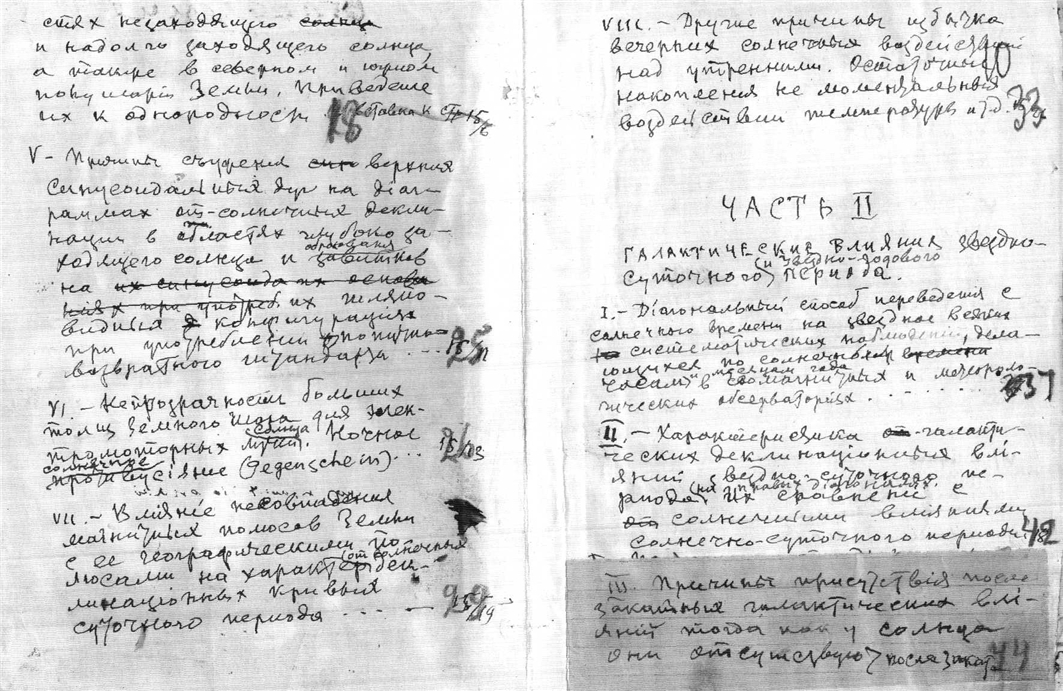 стях незаходящего солнца
и надолго заходящего солнца,
а также в северном и южном
полушарии Земли. Приведение
их к однородности. 18 вставка к
V - Причины сужения верхних
синусоидальных дуг на диаг-
раммах от-солнечных декли-
нации в областях глубоко за-
ходящего солнца и образования завитков
на их синусоида их основа
ниях при употреб их шляпо-
видных конфигурациях
при употреблении
возвратного гизандарза . . . 25
VI. - Непрозрачность больших
толщ Земного Шара для элек-
тромоторных лучей Солнца. Ночное
солнечное противусіяние (Gegenschein) . . .
VII. - Вліяніе несовпадения
магнитных полюсов Земли
с ее географическими по-
люсами на характер от-солнечных дек-
линаціонных кривых
суточного периода . . . . —
VIII. - Другие причины избытка
вечерних солнечных воздействий
над утренними. Остаточные
накопления не моментальных
воздействий температуры и т.д. 33
ЧАСТЬ II
ГАЛАКТИЧЕСКИЕ ВЛИЯНИЯ звездно-
суточного (и звездно-годового) периода.
I. - Діагональный способ переведения с
солнечного времени на звездное всяких
систематических наблюдений, дела-
ющихся по солнечным времени
часам и месяцам года в магнитных и метеороло-
гических обсерваториях . . . . . . 37
II. - Характеристика от-галакти-
ческих деклинаціонных влі-
яний звездно-суточного пе-
риода (их диагоналях). Их сравнение с
от солнечными влияниями
солнечно-суточного периода 42
III. Причины присутствія после
закатных галактических влі-
яний тогда как у солнца
они отсутствуют после заката 44